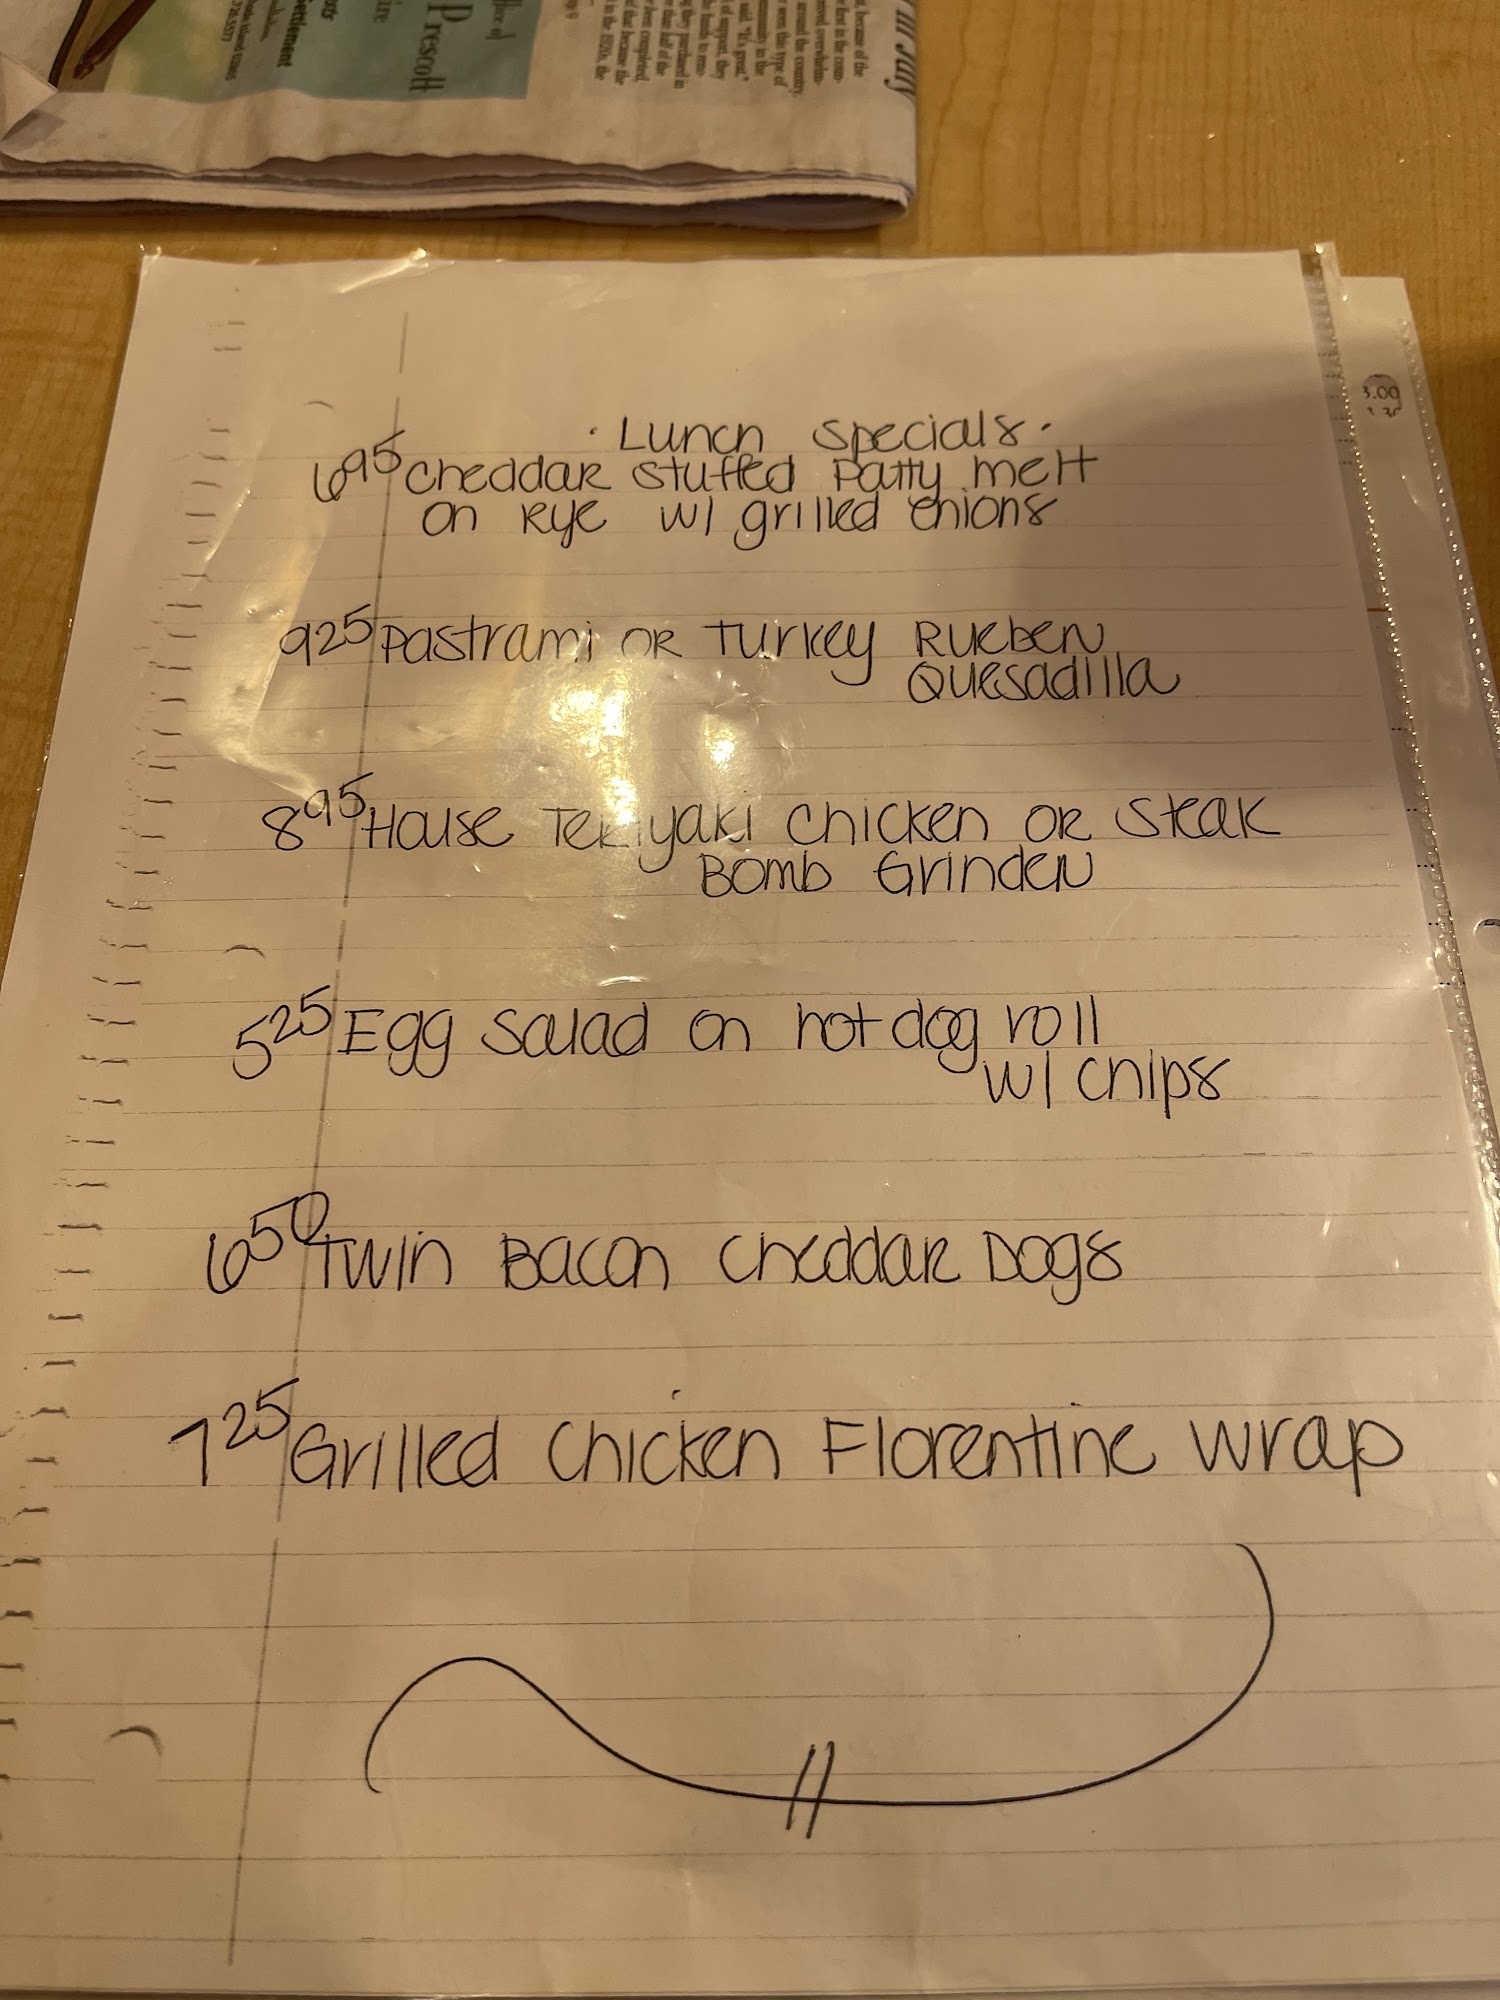 ffice of
Prescott
ire
Settlement
· Lunch Specials ·
6 95 Cheddar Stuffed Patty melt
on Rye w/ grilled onions
9 25 Pastrami OR Turkey Rueben
Quesadilla
8 95 House Teriyaki Chicken OR Steak
Bomb Grinder
5 25 Egg Salad on hot dog roll
w/ chips
6 50 Twin Bacon Cheddar Dogs
7 25 Grilled Chicken Florentine wrap
3.00